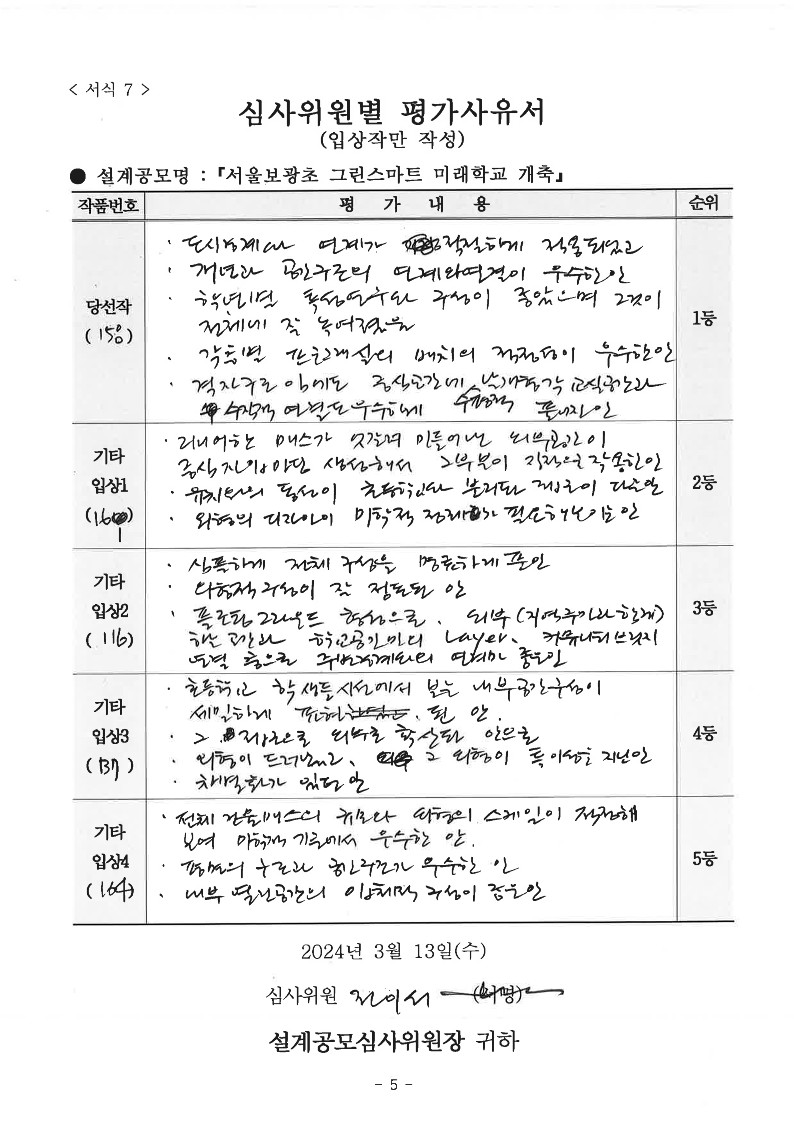 < 서식 7 >
심사위원별 평가사유서
(입상작만 작성)
● 설계공모명 : 『서울보광초 그린스마트 미래학교 개축』
작품번호 평 가 내 용 순위
당선작
(158)
· 도시와의 연계가 적절하게 적용되었고
· 개념과 공간구조의 연계와 연결이 우수한 안
· 학년별 특성 구성이 좋았으며 그것이
전체에 잘 녹여졌음
· 각층별 배치의 적정성이 우수한 안
· 격자구조 안에도 중심공간에 교실공간과
연결도 우수하게 풀어진 안
1등
기타
입상1
(161)
· 리니어한 매스가 엇갈려 만들어낸 외부공간이
생성해서 그 부분이 작용한 안
· 유치원의 동선이 초등학교와 분리된 계획이 다소
· 외형의 디자인이 미학적 정제가 필요해 보이는 안
2등
기타
입상2
(116)
· 심플하게 전체 구성을 명료하게 푼 안
· 외형적 구성이 잘 정돈된 안
· 필로티 그라운드 형성으로, 외부 (지역주민과 함께)
하는 공간과 학교공간과의 Layer, 커뮤니티 브릿지
연결 등으로 연계가 좋은 안
3등
기타
입상3
(137)
· 초등학교 학생들 시선에서 보는 내부공간 구성이
세밀하게 표현 된 안.
· 그 계획으로 외부로 확산된 안으로
· 외형이 드러났고, 그 외형이 독이성을 지닌 안
· 차별화가 있는 안
4등
기타
입상4
(164)
· 전체 건물매스의 규모와 외형의 스케일이 적정해
보여 미학적 기준에서 우수한 안.
· 평면의 구조과 공간구조가 우수한 안
· 내부 열린공간의 입체적 구성이 좋은 안
5등
2024년 3월 13일(수)
심사위원 전이서 (서명)
설계공모심사위원장 귀하
- 5 -